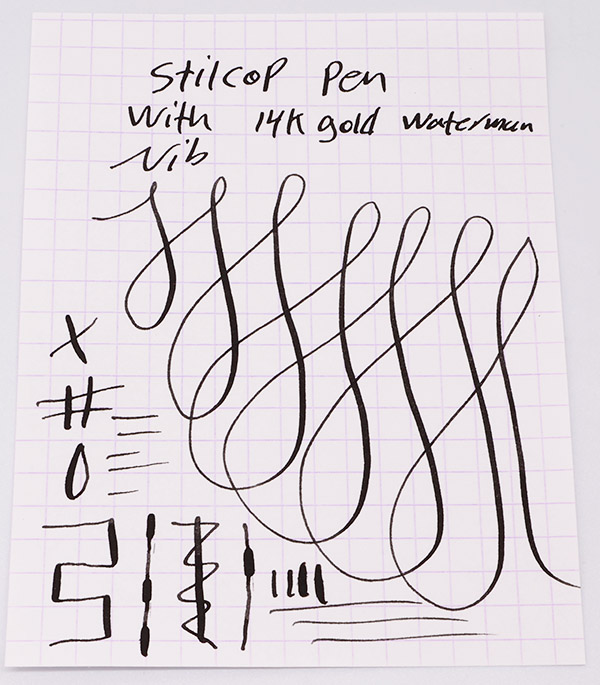 Stilcop Pen
With 14K gold Waterman
Nib
X
#
0